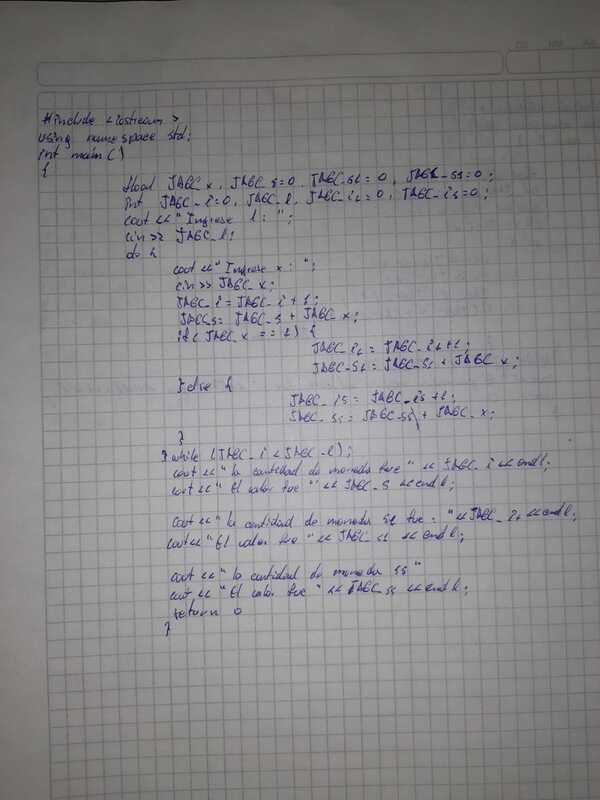 #include <iostream>
using namespace std;
int main()
{
float JABC_x, JABC_s=0, JABC_s1=0, JABC_s5=0;
int JABC_i=0, JABC_l, JABC_i1=0, JABC_i5=0;
cout << "Ingrese l: ";
cin >> JABC_l;
do {
cout << "Ingrese x: ";
cin >> JABC_x;
JABC_i = JABC_i + 1;
JABC_s = JABC_s + JABC_x;
if (JABC_x == 1) {
JABC_i1 = JABC_i1+1;
JABC_s1 = JABC_s1 + JABC_x;
} else {
JABC_i5 = JABC_i5 +1;
JABC_s5 = JABC_s5 + JABC_x;
}
} while (JABC_i < JABC_l);
cout << "la cantidad de moneda fue " << JABC_i << endl;
cout << " El valor fue " << JABC_s << endl;
cout << "la cantidad de moneda $1 fue : " << JABC_i1 << endl;
cout << " El valor fue " << JABC_s1 << endl;
cout << "la cantidad de moneda $5 "
cout << " El valor fue " << JABC_s5 << endl;
return 0
}